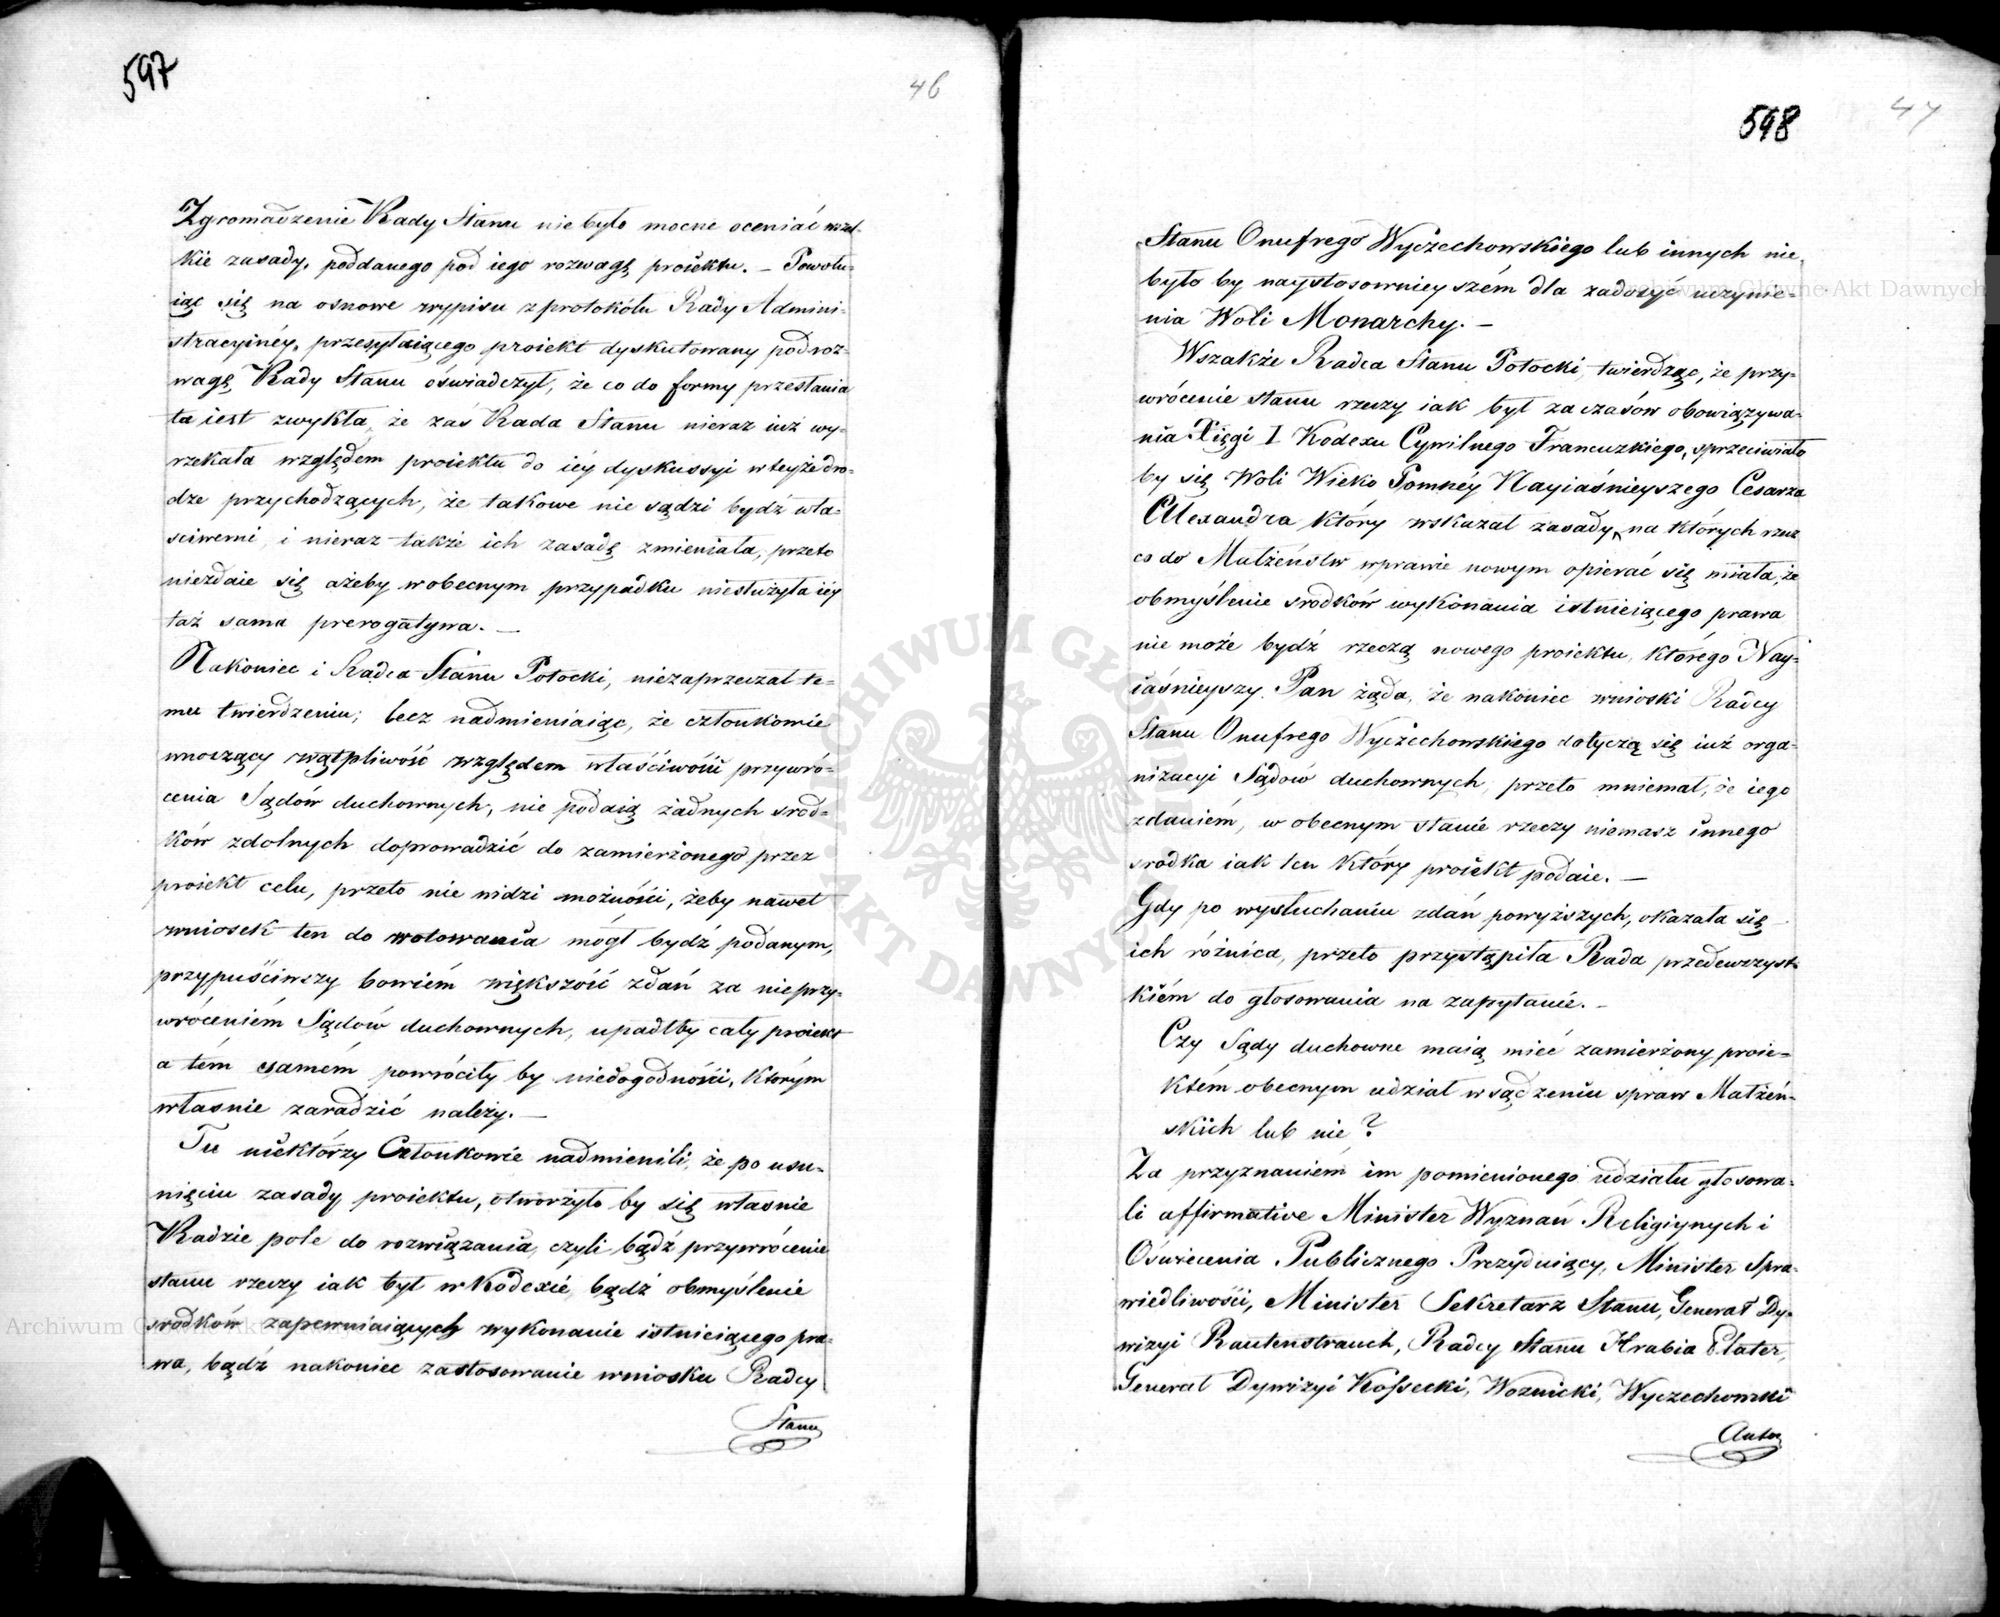 597
46
Zgromadzenie Rady Stanu niebyło mocne oceniać wszel-
kie zasady, poddanego pod iego rozwagę proiektu. – Powołu-
iąc się na osnowe wypisu z protokółu Rady Admini-
stracyinéy, przesyłaiącego proiekt dyskutowany pod roz-
wagę Rady Stanu oświadczył, że co do formy przesłania
ta iest zwykła, że zaś Rada Stanu nieraz iuż wy-
rzekała względem proiektu do iéy dyskussyi wteyże dro-
dze przychodzących, że takowe nie sądzi bydź wła-
sciwemi, i nieraz także ich zasadę zmieniała, przeto
niezdaie się ażeby wobecnym przypadku niesłużyła iéy
taż sama prerogatywa. –
Nakoniec i Radca Stanu Potocki, niezaprzeczał te-
mu twierdzeniu; lecz nadmieniaiąc, że członkowie
wnoszący wątpliwość względem właściwości przywró-
cenia Sądów duchownych, nie podaią żadnych srod-
ków zdolnych doprowadzić do zamierżonego przez
proiekt celu, przeto nie widzi możności, żeby nawet
wniosek ten do wotowania mógł bydź podanym,
przypuściwszy bowiém większość zdań za nieprzy-
wróceniém Sądów duchownych, upadłby cały proiekt
a tém samém powróciły by niedogodności, którym
własnie zaradzić należy. –
Tu niektórzy Członkowie nadmienili, że po usu-
nięciu zasady proiektu, otworżyło by się własnie
Radzie pole do rozwiązania, czyli bądź przywrócenie
stanu rzeczy iak był w Kodexie, bądź obmyślenie
srodków zapewniaiących wykonanie istnieiącego pra-
wa, bądź nakoniec zastosowanie wniosku Radcy
Stanu
598
47
Stanu Onufrego Wyczechowskiego lub innych nie-
było by naystosownieyszém dla zadosyć uczynie-
nia Woli Monarchy. –
Wszakże Radca Stanu Potocki, twierdząc, że przy-
wrócenie stanu rzeczy iak był za czasów obowiązywa-
nia Xięgi I Kodexu Cywilnego Francuzkiego, sprzeciwiało
by się Woli Wieko Pomnéy Nayiaśnieyszego Cesarza
Alexandra który wskazał zasady, na których rzecz
co do Małżeństw wprawie nowym opierać się miała, że
obmyślenie srodków wykonania istnieiącego prawa
nie może bydź rzeczą nowego proiektu, którego Nay-
iaśnieyszy Pan żąda, że nakoniec wnioski Radcy
Stanu Onufrego Wyczechowskiego dotyczą się iuż orga-
nizacyi Sądów duchownych, przeto mniemał, że iego
zdaniém, w obecnym stanie rzeczy niemasz innego
srodka iak ten który proiekt podaie. –
Gdy po wysłuchaniu zdań powyższych, okazała się
ich różnica, przeto przystąpiła Rada przedewszyst-
kiém do głosowania na zapytanie. –
Czy Sądy duchowne maią mieć zamierżony proie-
ktém obecnym udział w sądzeniu spraw Małżeń-
skich lub nie?
Za przyznaniém im pomienionego udziału głosowa-
li affirmative Minister Wyznań Religiynych i
Oświecenia Publicznego Prezyduiący, Minister Spra-
wiedliwości, Minister Sekretarz Stanu, Generał Dy-
wizyi Rautenstrauch, Radcy Stanu Hrabia Plater,
Generał Dywizyi Kossecki, Woznicki, Wyczechowski
Anton
Archiwum Główne Akt Dawnych
ARCHIWUM GŁÓWNE AKT DAWNYCH